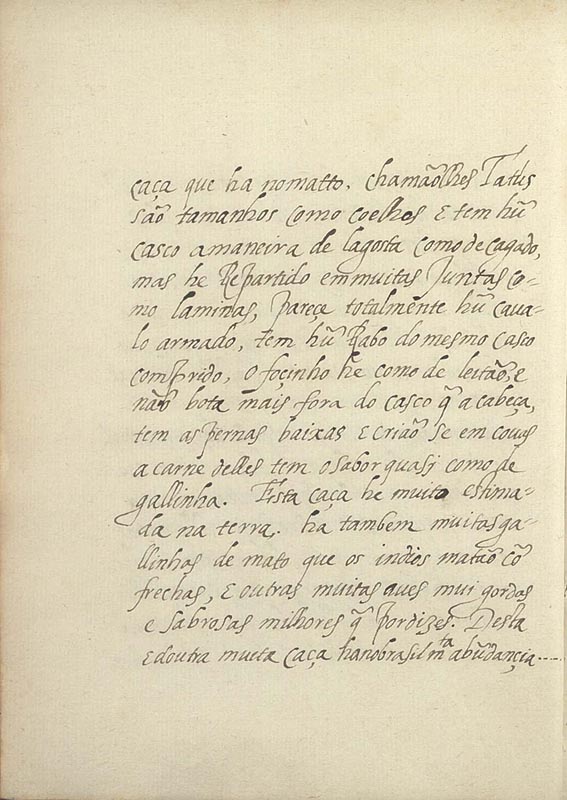 caça que ha no matto. chamãolhes Tatús
são tamanhos como coelhos e tem hũ
casco a maneira de lagosta como de cagado,
mas he Repartido em muitas Juntas co-
mo laminas, pareçe totalmẽte hũ caua-
lo armado, tem hũ Rabo do mesmo casco
comprido, o foçinho he como de leitão, e
não bota mais fora do casco q̃ a cabeça,
tem as pernas baixas e criãose em couas
a carne delles tem o sabor quasj como de
gallinha. Esta caça he muito estima-
da na terra. ha tambem muitas ga-
llinhas de mato que os indios matão cõ
frechas, e outras muitas aues mui gordas
e sabrosas milhores q̃ perdizes. Desta
e doutra muita caça ha no brasil mta abũdançia....